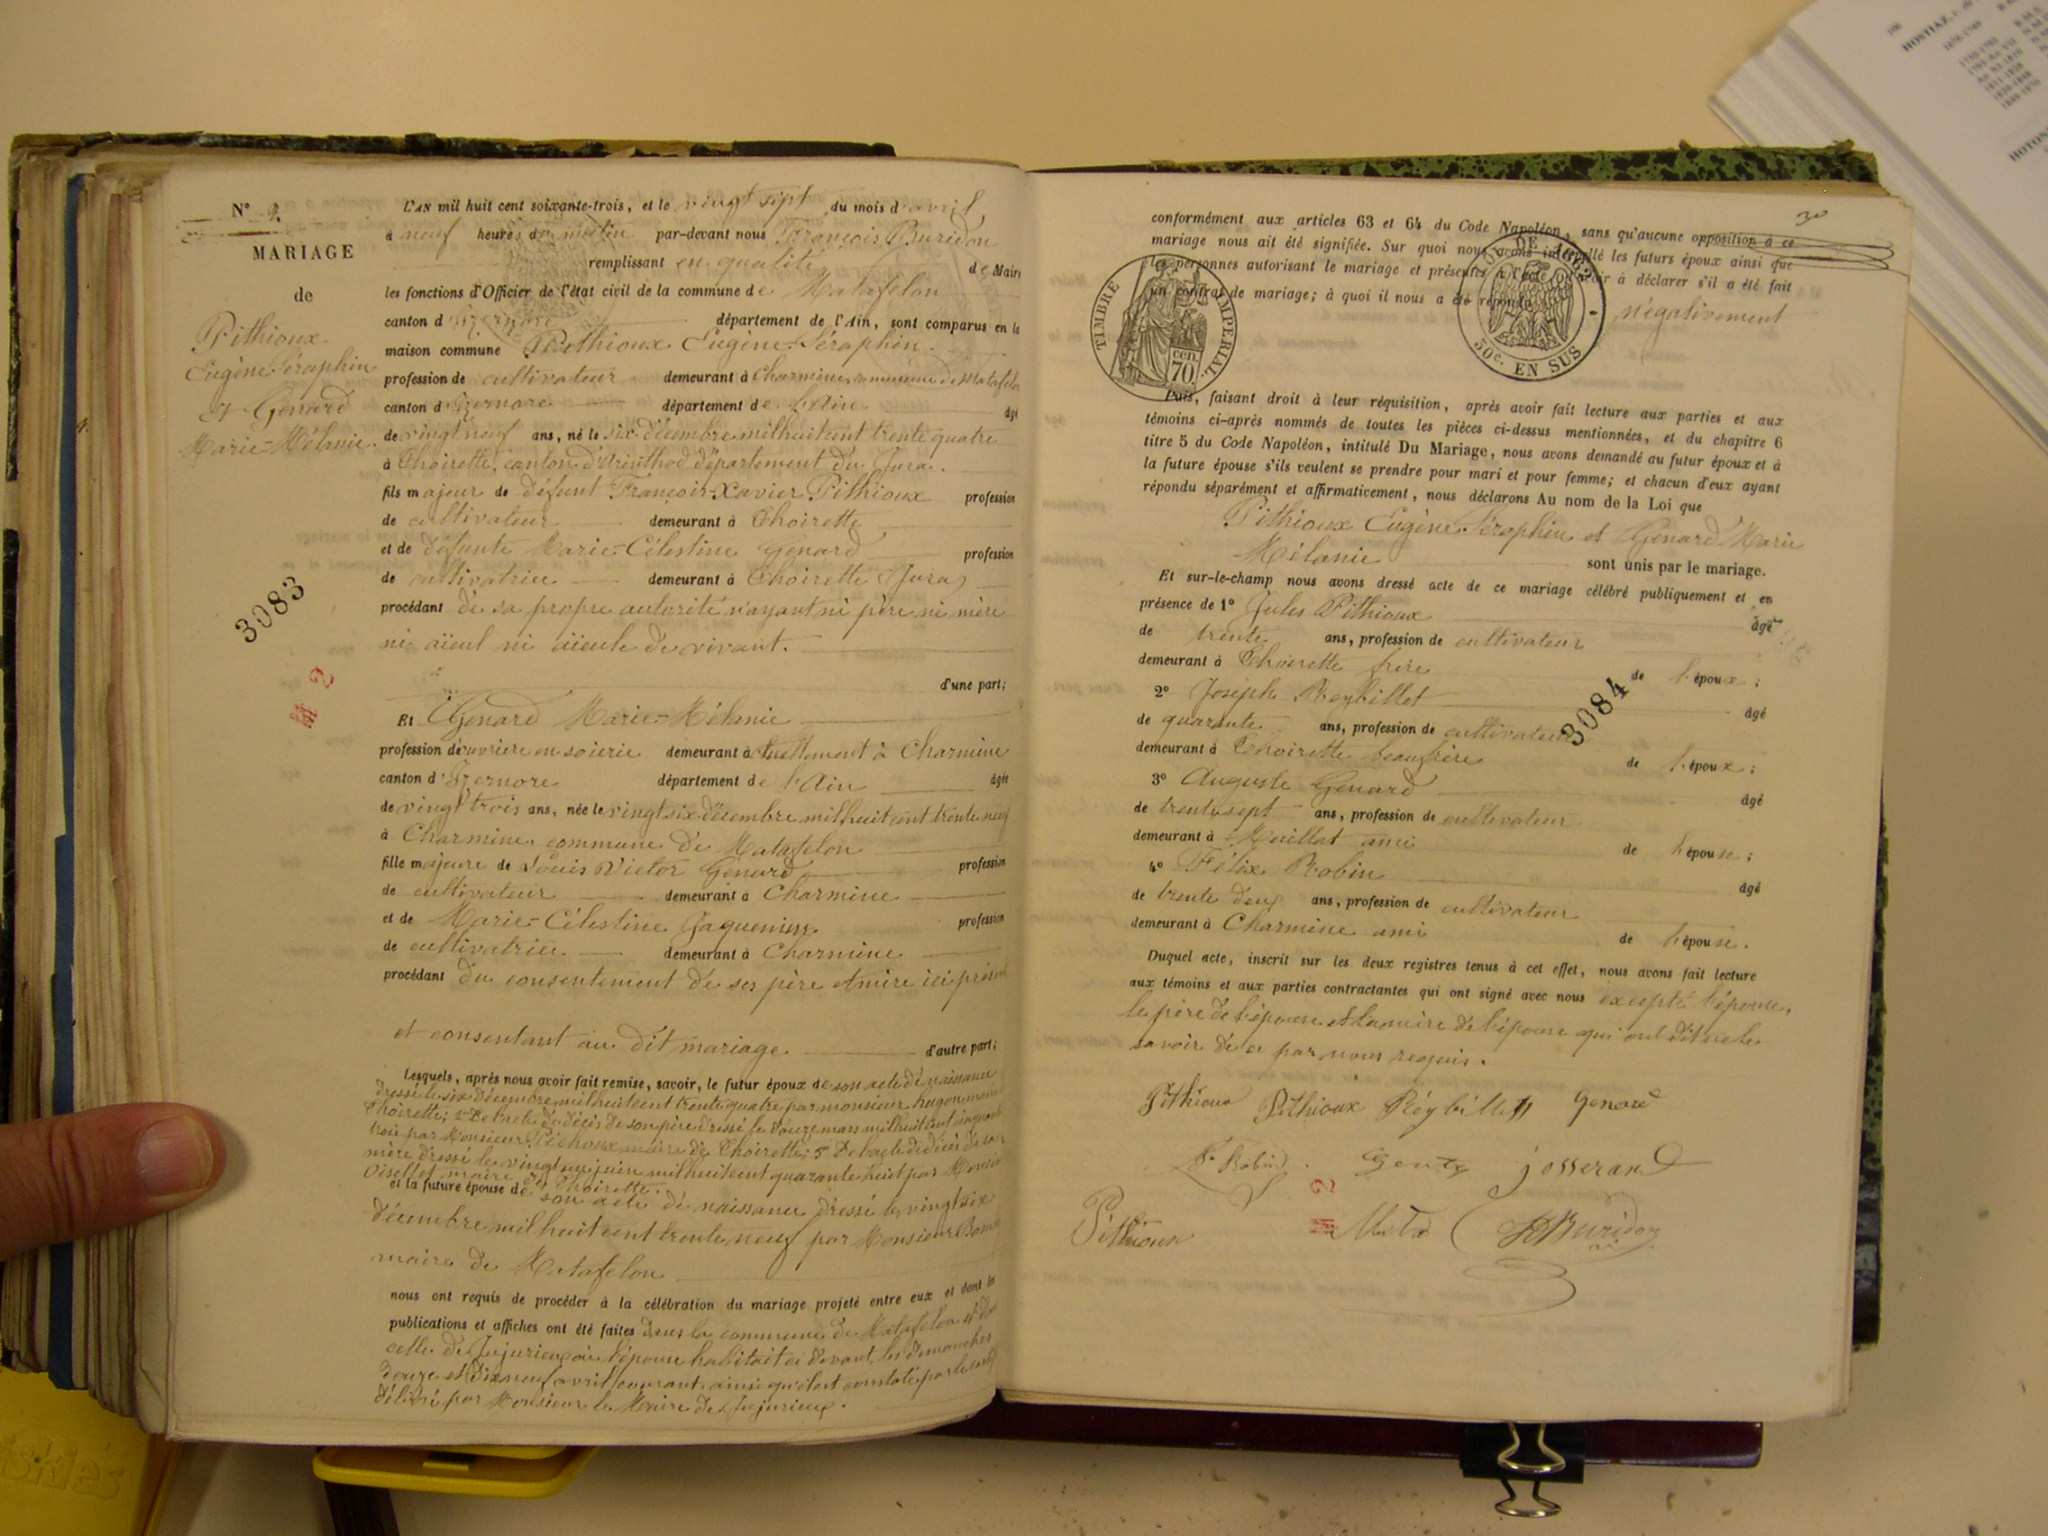 N° 4.
MARIAGE
de
Pithioux
Eugène Séraphin
et Genard
Marie-Mélanie.
3083
2
L'AN mil huit cent soixante-trois, et le vingt sept du mois d'avril,
à neuf heures du matin par-devant nous François Buridon
remplissant en qualité de Maire
les fonctions d'Officier de l'état civil de la commune de Matafelon
canton d'Izernore département de l'Ain, sont comparus en la
maison commune Pithioux Eugène-Séraphin
profession de cultivateur demeurant à Charmine commune de Matafelon
canton d'Izernore département de l'Ain âgé
de vingt neuf ans, né le six décembre mil huit cent trente quatre
à Thoirette, canton d'Arinthod département du Jura.
fils majeur de défunt François-Xavier Pithioux profession
de cultivateur demeurant à Thoirette
et de défunte Marie-Célestine Genard profession
de cultivatrice demeurant à Thoirette (Jura)
procédant de sa propre autorité n'ayant ni père ni mère
ni aïeul ni aïeule de vivant.
d'une part;
Et Genard Marie-Mélanie
profession d'ouvrière en soierie demeurant à actuellement à Charmine
canton d'Izernore département de l'Ain âgée
de vingt trois ans, née le vingt six décembre mil huit cent trente neuf
à Charmine commune de Matafelon
fille majeure de Louis Victor Genard profession
de cultivateur demeurant à Charmine
et de Marie-Célestine profession
de cultivatrice demeurant à Charmine
procédant du consentement de ses père et mère ici présent
et consentant au dit mariage d'autre part;
Lesquels, après nous avoir fait remise, savoir, le futur époux de son acte de naissance
dressé le six décembre mil huit cent trente quatre par monsieur hugon maire
Thoirette; 2° De l'acte de décès de son père dressé le douze mars mil huit cent cinquante
trois par Monsieur maire de Thoirette; De l'acte de décès de sa
mère dressé le vingt juin mil huit cent quarante huit par Monsieur
Oisellet maire de Thoirette.
et la future épouse de son acte de naissance dressé le vingt six
décembre mil huit cent trente neuf par Monsieur
maire de Matafelon
nous ont requis de procéder à la célébration du mariage projeté entre eux et dont les
publications et affiches ont été faites dans la commune de Matafelon et dans
celle de Jujurieux où l'épouse habitait ci devant, les dimanches
douze et dix neuf avril courant ainsi qu'il est constaté par le certificat
délivré par Monsieur le Maire de Jujurieux.
30
conformément aux articles 63 et 64 du Code Napoléon, sans qu'aucune opposition à ce
mariage nous ait été signifiée. Sur quoi nous avons interpellé les futurs époux ainsi que
les personnes autorisant le mariage et présentes à l'acte d'avoir à déclarer s'il a été fait
un contrat de mariage; à quoi il nous a été répondu
négativement
TIMBRE IMPERIAL
cen.
70
DE 1862
50c. EN SUS
Puis, faisant droit à leur réquisition, après avoir fait lecture aux parties et aux
témoins ci-après nommés de toutes les pièces ci-dessus mentionnées, et du chapitre 6
titre 5 du Code Napoléon, intitulé Du Mariage, nous avons demandé au futur époux et à
la future épouse s'ils veulent se prendre pour mari et pour femme; et chacun d'eux ayant
répondu séparément et affirmativement, nous déclarons Au nom de la Loi que
Pithioux Eugène Séraphin et Genard Marie
Mélanie sont unis par le mariage.
Et sur-le-champ nous avons dressé acte de ce mariage célébré publiquement et en
présence de 1° Jules Pithioux âgé
de trente ans, profession de cultivateur
demeurant à Thoirette frère de l'époux;
2° Joseph Reybillet âgé
de quarante ans, profession de cultivateur
demeurant à Thoirette beaufrère de l'époux;
3084
3° Auguste Genard âgé
de trente sept ans, profession de cultivateur
demeurant à ami de l'épouse;
4° Félix Robin âgé
de trente deux ans, profession de cultivateur
demeurant à Charmine ami de l'épouse.
Duquel acte, inscrit sur les deux registres tenus à cet effet, nous avons fait lecture
aux témoins et aux parties contractantes qui ont signé avec nous excepté l'épouse,
le père de l'épouse et la mère de l'épouse qui ont dit ne le
savoir de ce par nous requis.
Pithioux Pithioux Reybillet Genard
F. Robin josserand
Pithioux Buridon
2